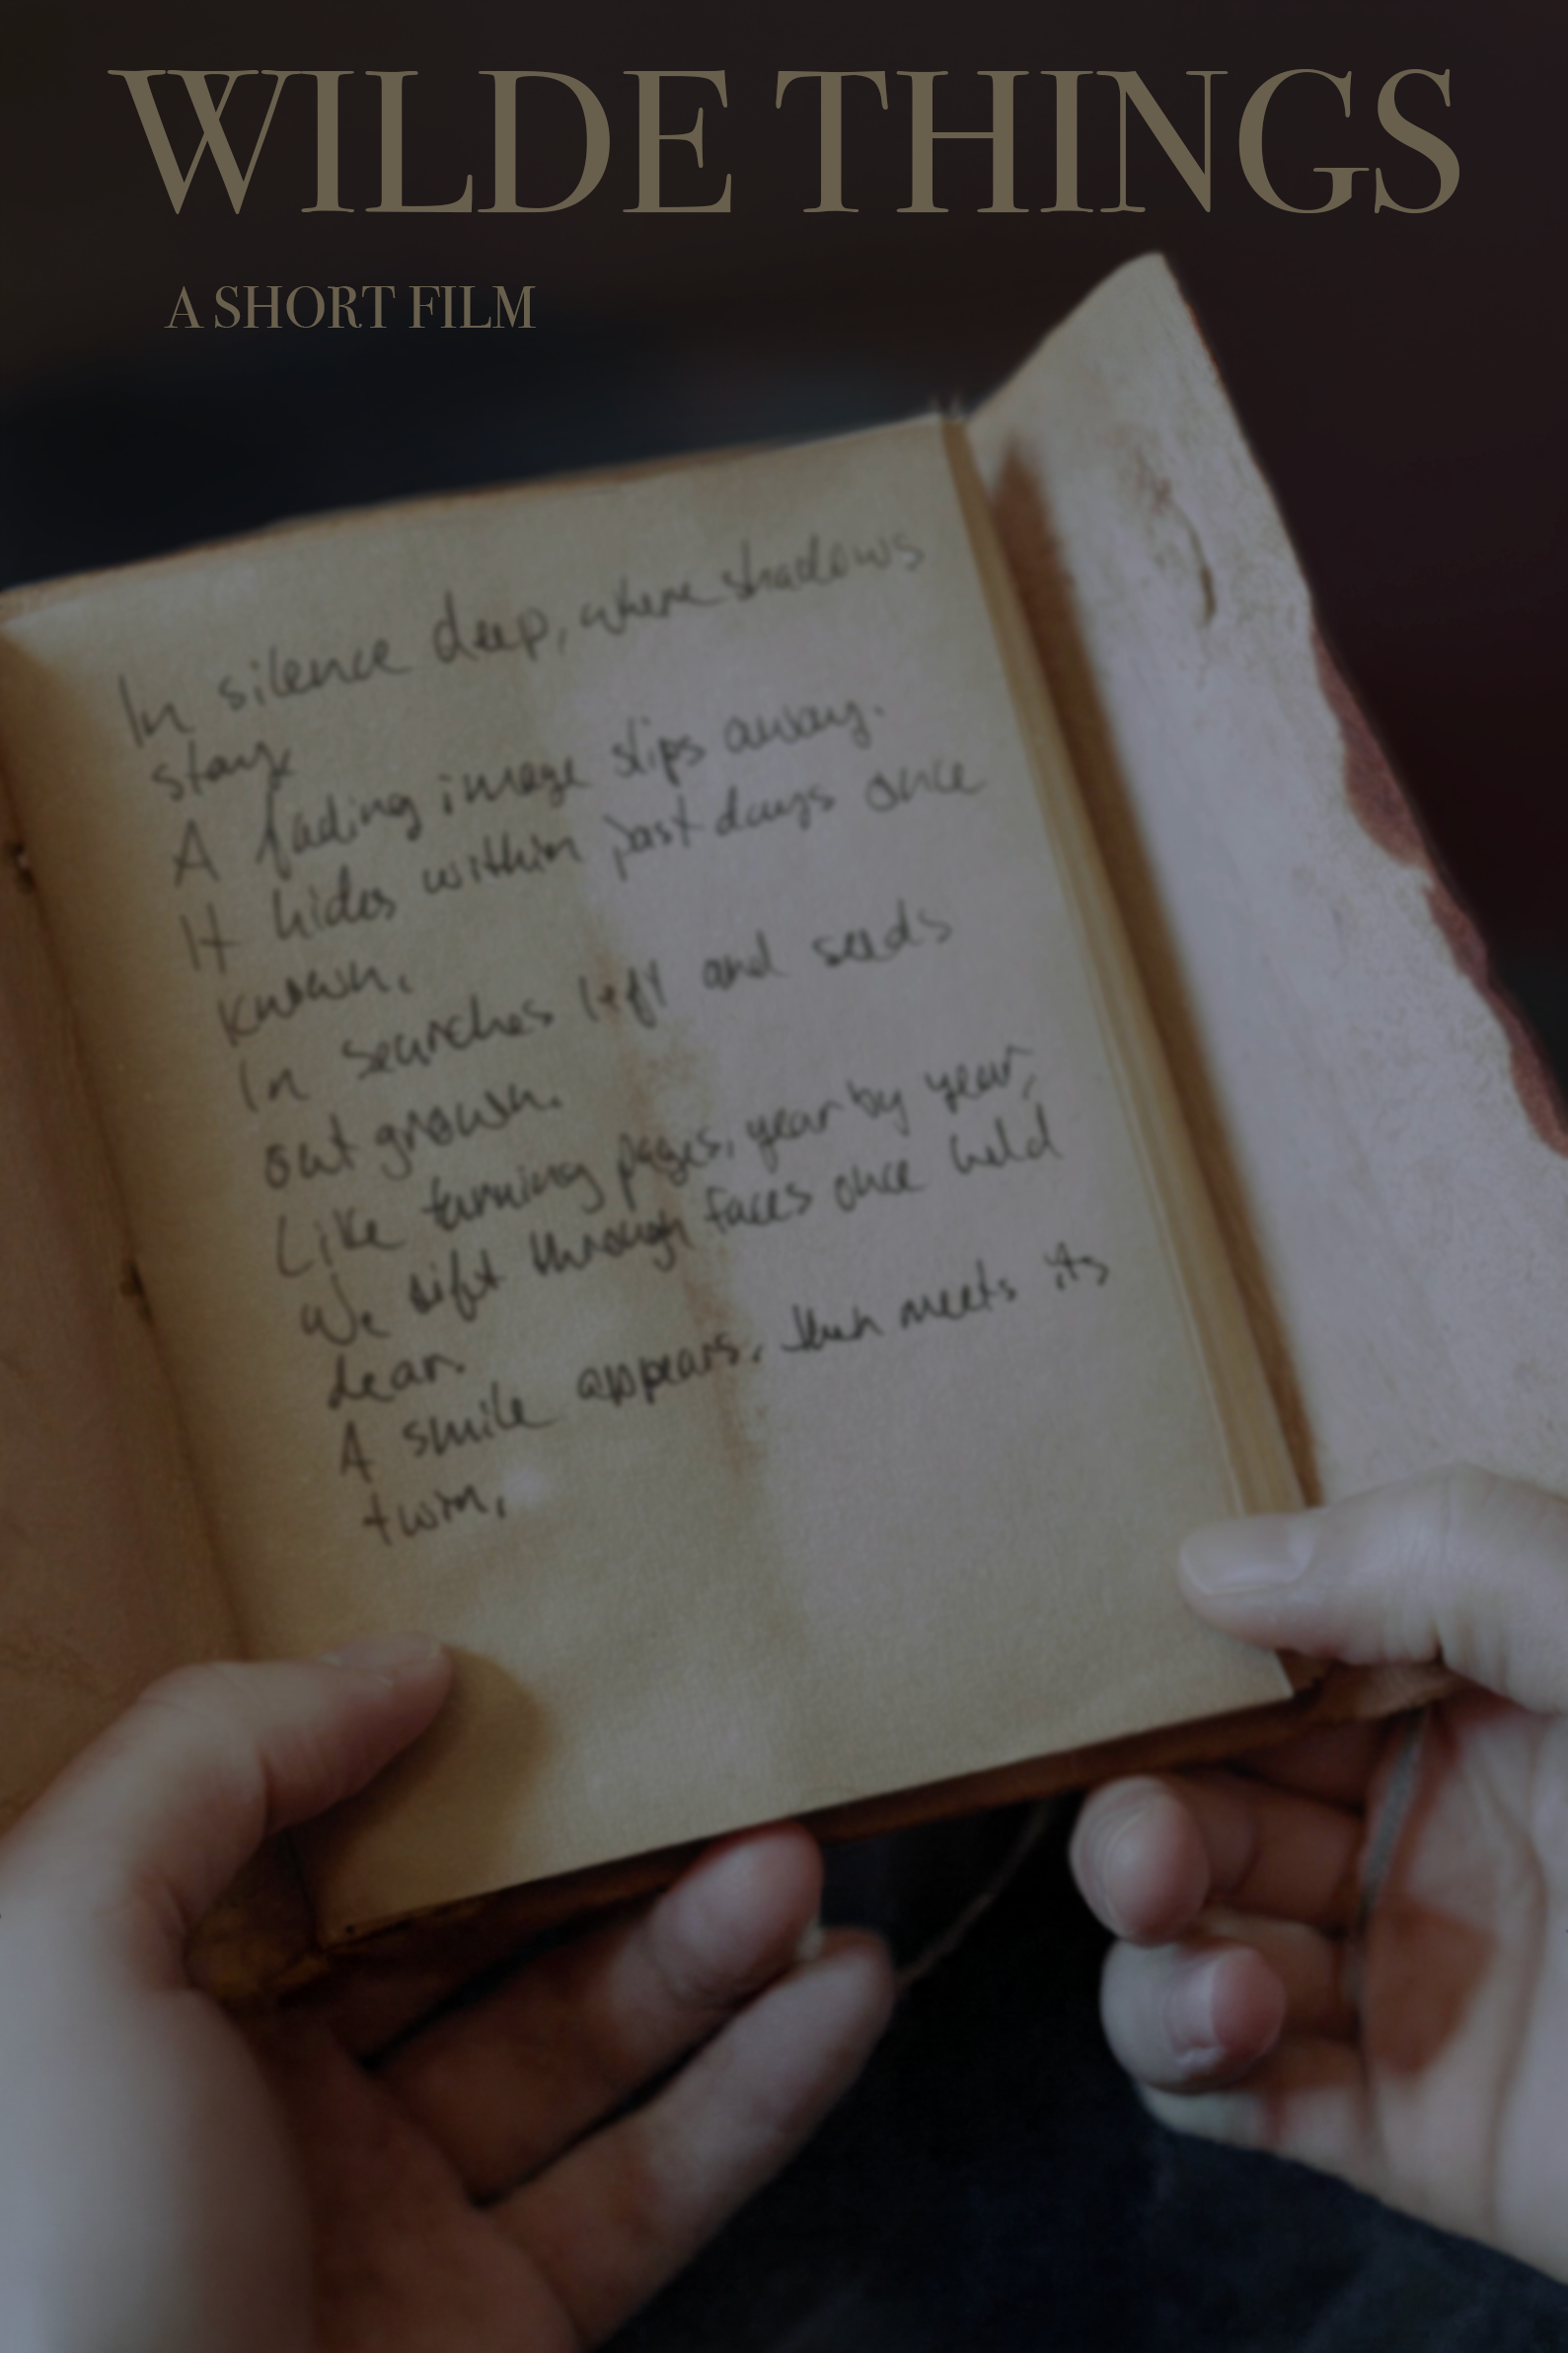 WILDE THINGS
A SHORT FILM
In silence deep, where shadows
stay,
A fading image slips away.
It hides within past days once
known,
In searches left and seeds
out grown.
Like turning pages, year by year,
We sift through faces once held
dear.
A smile appears, then meets its
twin,